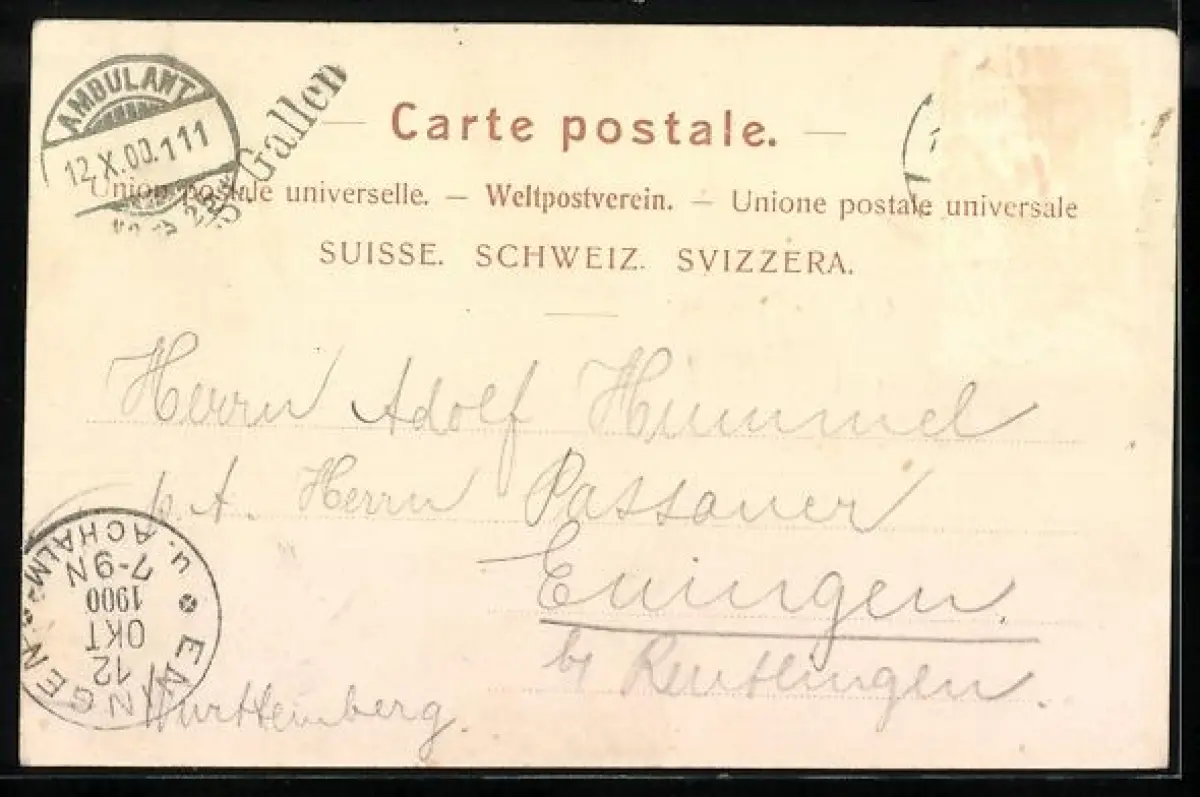 AMBULANT
12.X.00.111
St. Gallen
Carte postale.
Union postale universelle. — Weltpostverein. — Unione postale universale
SUISSE. SCHWEIZ. SVIZZERA.
Herrn Adolf Hummel
p. A. Herrn Passauer
Eningen.
by Reutlingen.
Württemberg.
ENINGEN u. ACHALM
12
OKT
1900
7-9N